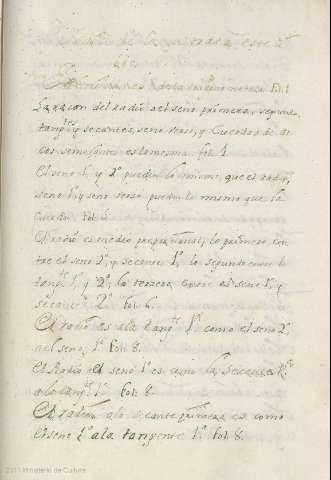 de la este
Fol. 1
La razon del radio al seno primero, segundo,
tang.tes y secantes, seno verso, y Cuerda de ar
cos semejantes es la misma fol. 1.
El seno 1.º y 2.º pueden lo mismo, que el radio,
seno 1.º y seno verso pueden lo mismo que la
Cuerda fol. 5
El radio es medio proporcional, lo primero en
tre el seno 2.º, y secante 1.ª, lo segundo entre la
tang.te 1.ª y 2.ª, lo tercero entre el seno 1.º y
secante 2.ª fol. 6.
El radio es a la tang.te 1.ª como el seno 2.º
al seno 1.º fol. 8.
El Radio al seno 1.º es como la Secante 1.ª
a la tang.te 1.ª fol. 8.
El radio a la secante primera es como
el seno 1.º a la tangente 1.ª fol. 8.
2011 Ministerio de Cultura